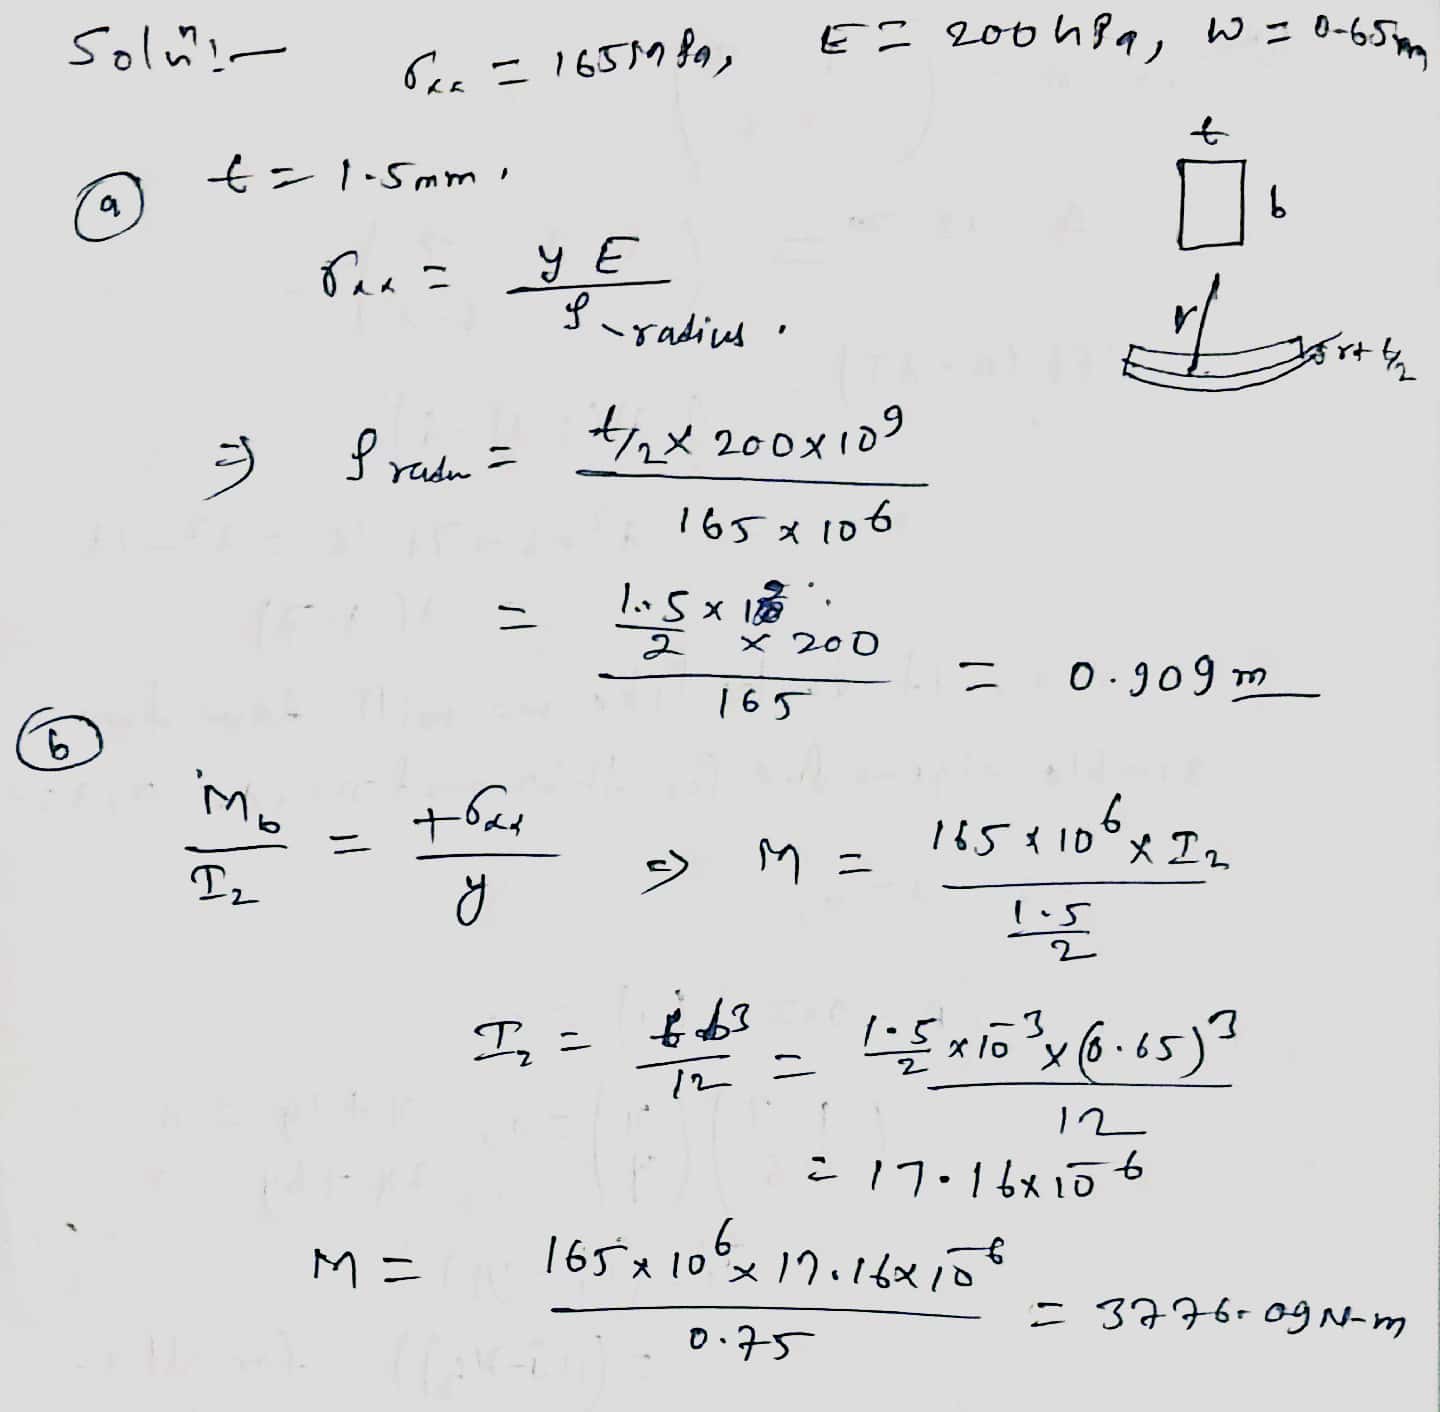 Solñ:- σxx = 165MPa, E = 200 GPa, W = 0.65m
(a) t = 1.5mm,
t
b
σxx = yE / ρ-radius.
r
r+t/2
⇒ ρ = t/2 × 200×10^9 / 165×10^6
= 1.5/2 × 200 / 165 = 0.909 m
(b)
Mb / Iz = +σxx / y ⇒ M = 165×10^6 × Iz / (1.5/2)
Iz = tb^3 / 12 = 1.5/2 ×10^-3 × (0.65)^3 / 12
= 17.16×10^-6
M = 165×10^6 × 17.16×10^-6 / 0.75 = 3776.09 N-m